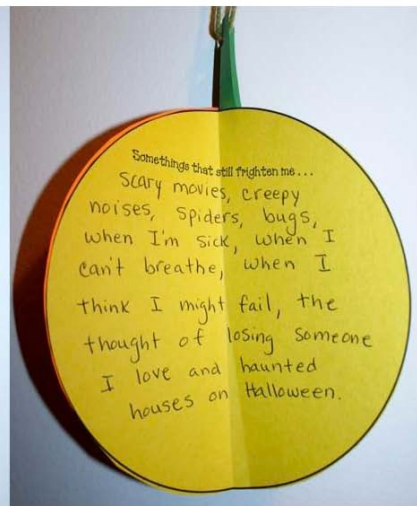 Somethings that still frighten me...
Scary movies, creepy
noises, spiders, bugs,
when I'm sick, when I
can't breathe, when I
think I might fail, the
thought of losing someone
I love and haunted
houses on Halloween.